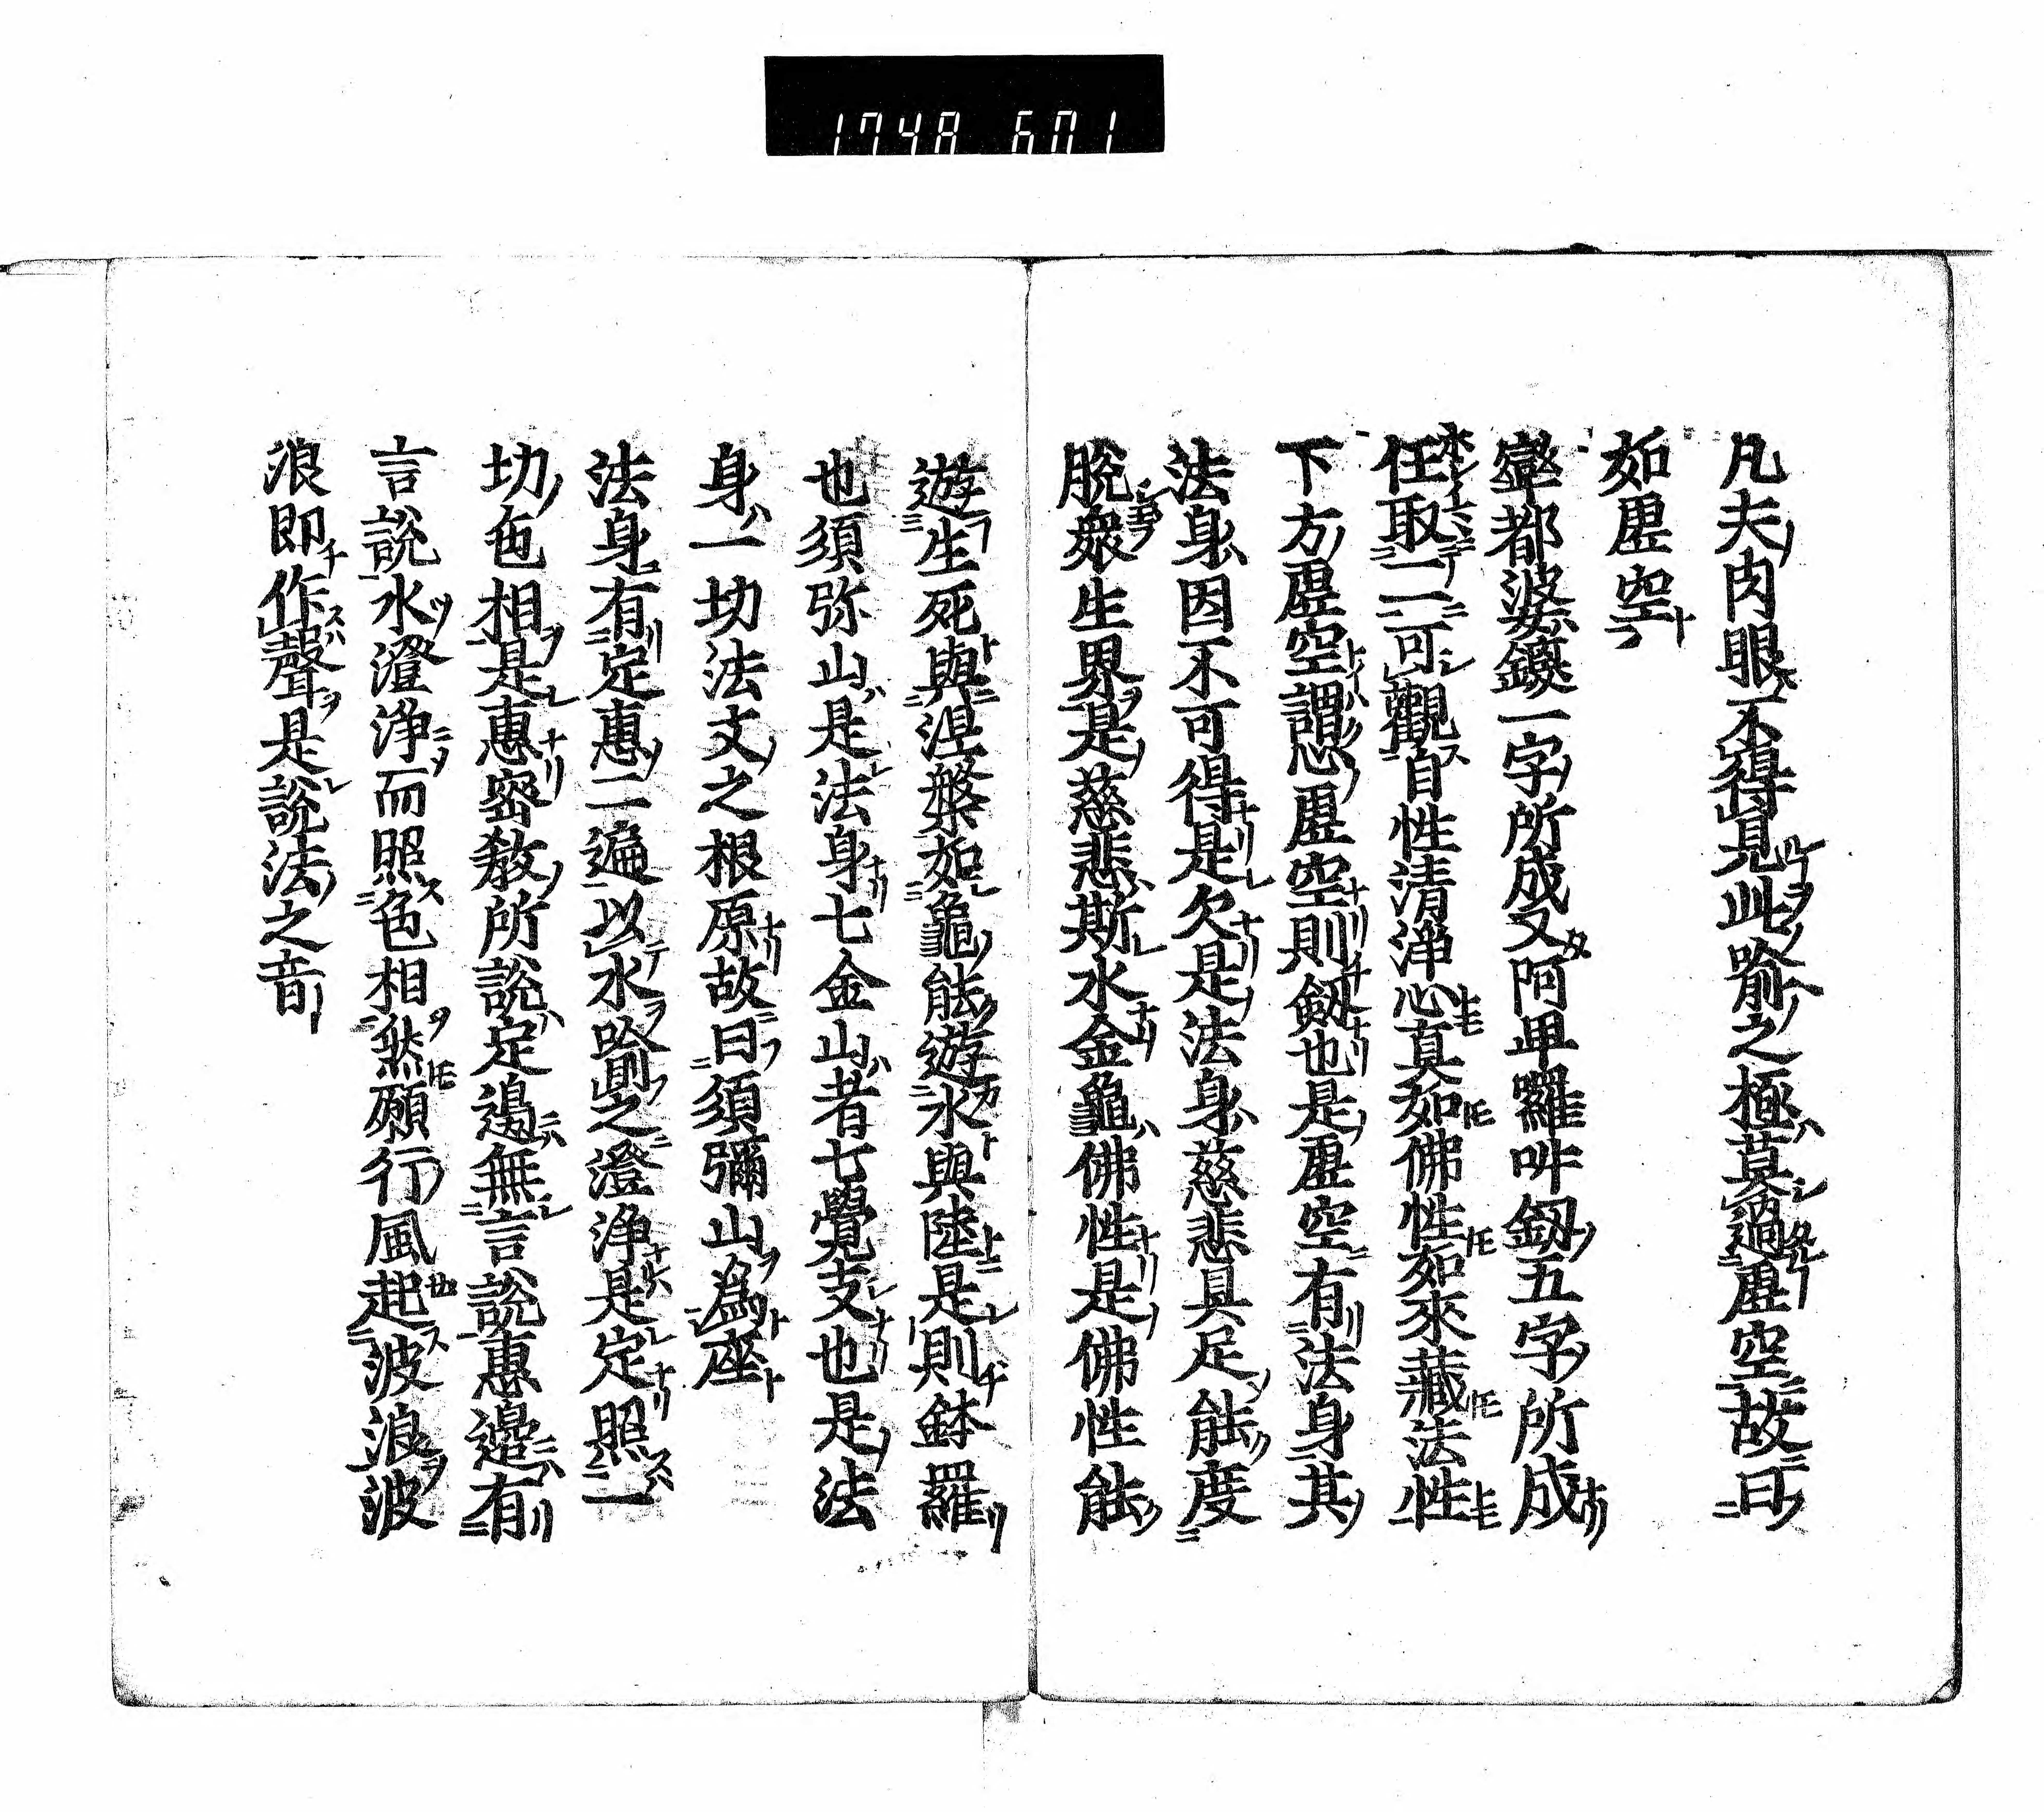 1748 601
凡夫肉眼不得見此喩之極莫過虚空故曰
如虚空
窣都婆鑁一字所成又阿卑羅吽釼五字所成
任取一二可觀自性清浄心真如佛性如來藏法性
下方虚空謂虚空則釼也是虚空有法身其
法身因不可得是欠是法身慈悲具足能度
脱衆生界是慈悲斯水金龜佛性是佛性能
遊生死與涅槃如龜能遊水與陸是則鉢羅
也須弥山是法身七金山者七覺支也是法
身一切法文之根原故曰須彌山爲座
法身有定惠二遍以水喩之澄浄是定照一
切色相是惠密教所説定邊無言説惠邊有
言説水澄浄而照色相然願行風起波浪波
浪即作聲是説法之音